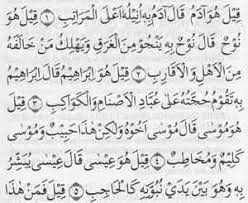 قِيلَ هُوَ آدَمُ قَالَ آدَمُ بِهِ أُنِيلُهُ أَعْلَى الْمَرَاتِبِ ۝١ قِيلَ هُوَ
نُوحٌ قَالَ نُوحٌ بِهِ يَنْجُو مِنَ الْغَرَقِ وَيَهْلِكُ مَنْ خَالَفَهُ
مِنَ الْأَهْلِ وَالْأَقَارِبِ ۝٢ قِيلَ هُوَ إِبْرَاهِيمُ قَالَ إِبْرَاهِيمُ
بِهِ تَقُومُ حُجَّتُهُ عَلَى عُبَّادِ الْأَصْنَامِ وَالْكَوَاكِبِ ۝٣ قِيلَ
هُوَ مُوسَى قَالَ مُوسَى أَخُوهُ وَلَكِنْ هَذَا حَبِيبٌ وَمُوسَى
كَلِيمٌ وَمُخَاطِبٌ ۝٤ قِيلَ هُوَ عِيسَى قَالَ عِيسَى يُبَشِّرُ
بِهِ وَهُوَ بَيْنَ يَدَيْ نُبُوَّتِهِ كَالْحَاجِبِ ۝٥ قِيلَ فَمَنْ هَذَا